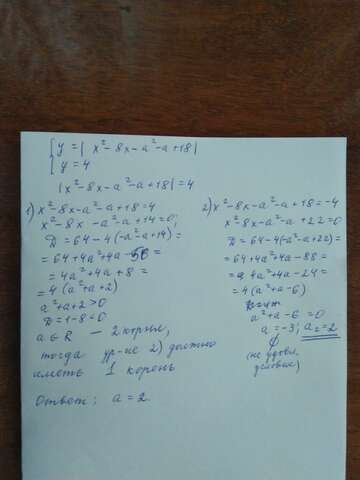 { y = | x² - 8x - a² - a + 18 |
y = 4
| x² - 8x - a² - a + 18 | = 4
1) x² - 8x - a² - a + 18 = 4
x² - 8x - a² - a + 14 = 0;
D = 64 - 4(-a² - a + 14) =
= 64 + 4a² + 4a - 56 =
= 4a² + 4a + 8 =
= 4(a² + a + 2)
a² + a + 2 > 0
D = 1 - 8 < 0
a ∈ R — 2 корня,
тогда ур-ие 2) должно
иметь 1 корень
2) x² - 8x - a² - a + 18 = -4
x² - 8x - a² - a + 22 = 0
D = 64 - 4(-a² - a + 22) =
= 64 + 4a² + 4a - 88 =
= 4a² + 4a - 24 =
= 4(a² + a - 6)
a² + a - 6 = 0
a = -3; a₂ = 2
∅
(не удовл.
условию)
Ответ: a = 2.